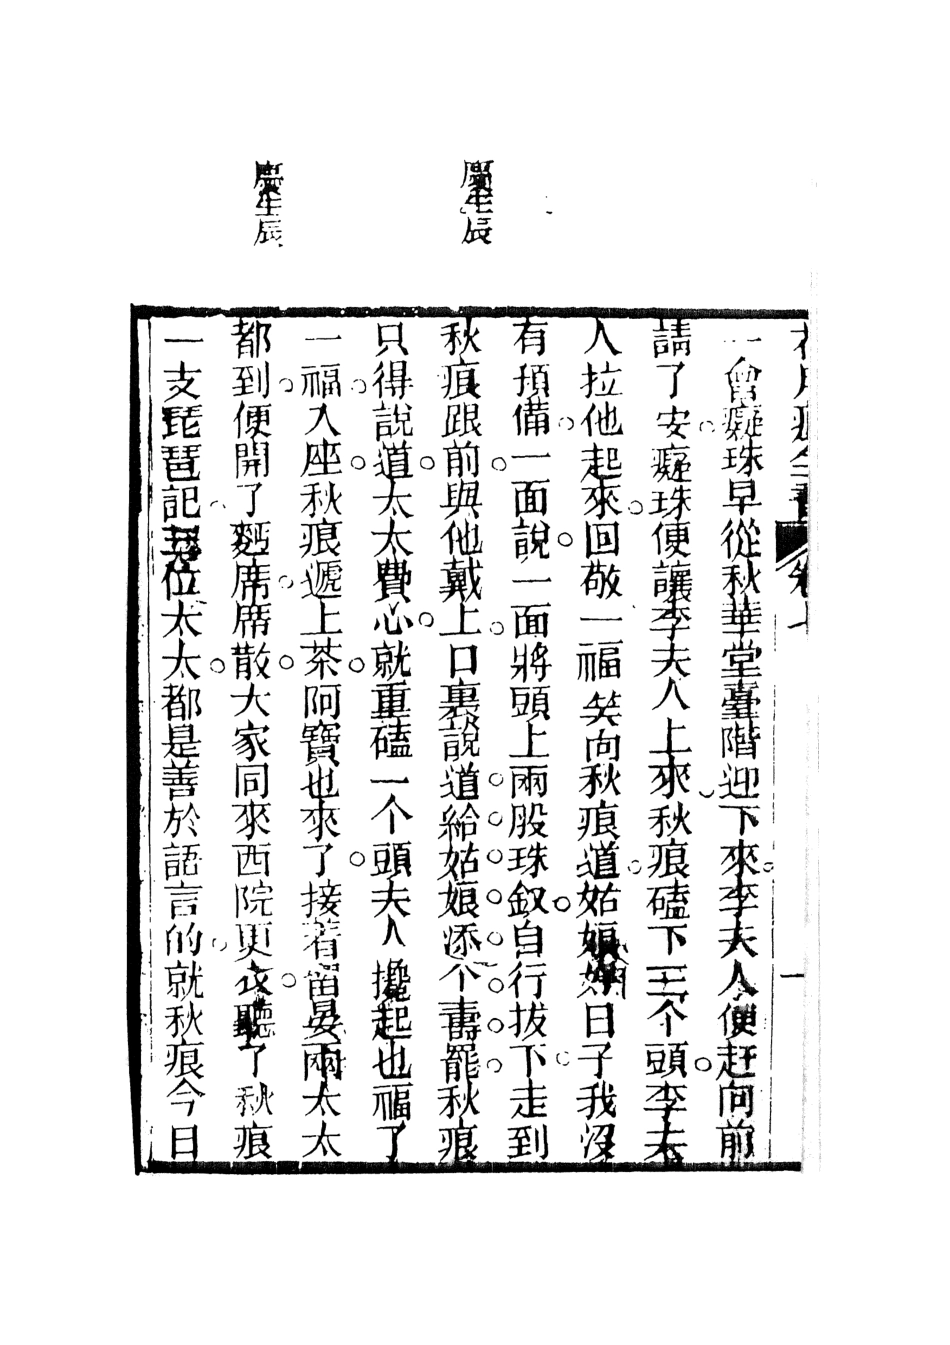 花月痕全書 卷七 一
一會癡珠早從秋華堂臺階迎下來李夫人便赶向前
請了安癡珠便讓李夫人上來秋痕磕下三个頭李夫
人拉他起來回敬一福笑向秋痕道姑娘好日子我沒
有預備一面說一面將頭上兩股珠釵自行拔下走到
秋痕跟前與他戴上口裏說道給姑娘添个壽罷秋痕
只得說道太太費心就重磕一个頭夫人攙起也福了
一福入座秋痕遞上茶阿寶也來了接着留晏兩太太
都到便開了麪席席散大家同來西院更衣聽了秋痕
一支琵琶記 位太太都是善於語言的就秋痕今日
慶生辰
慶生辰